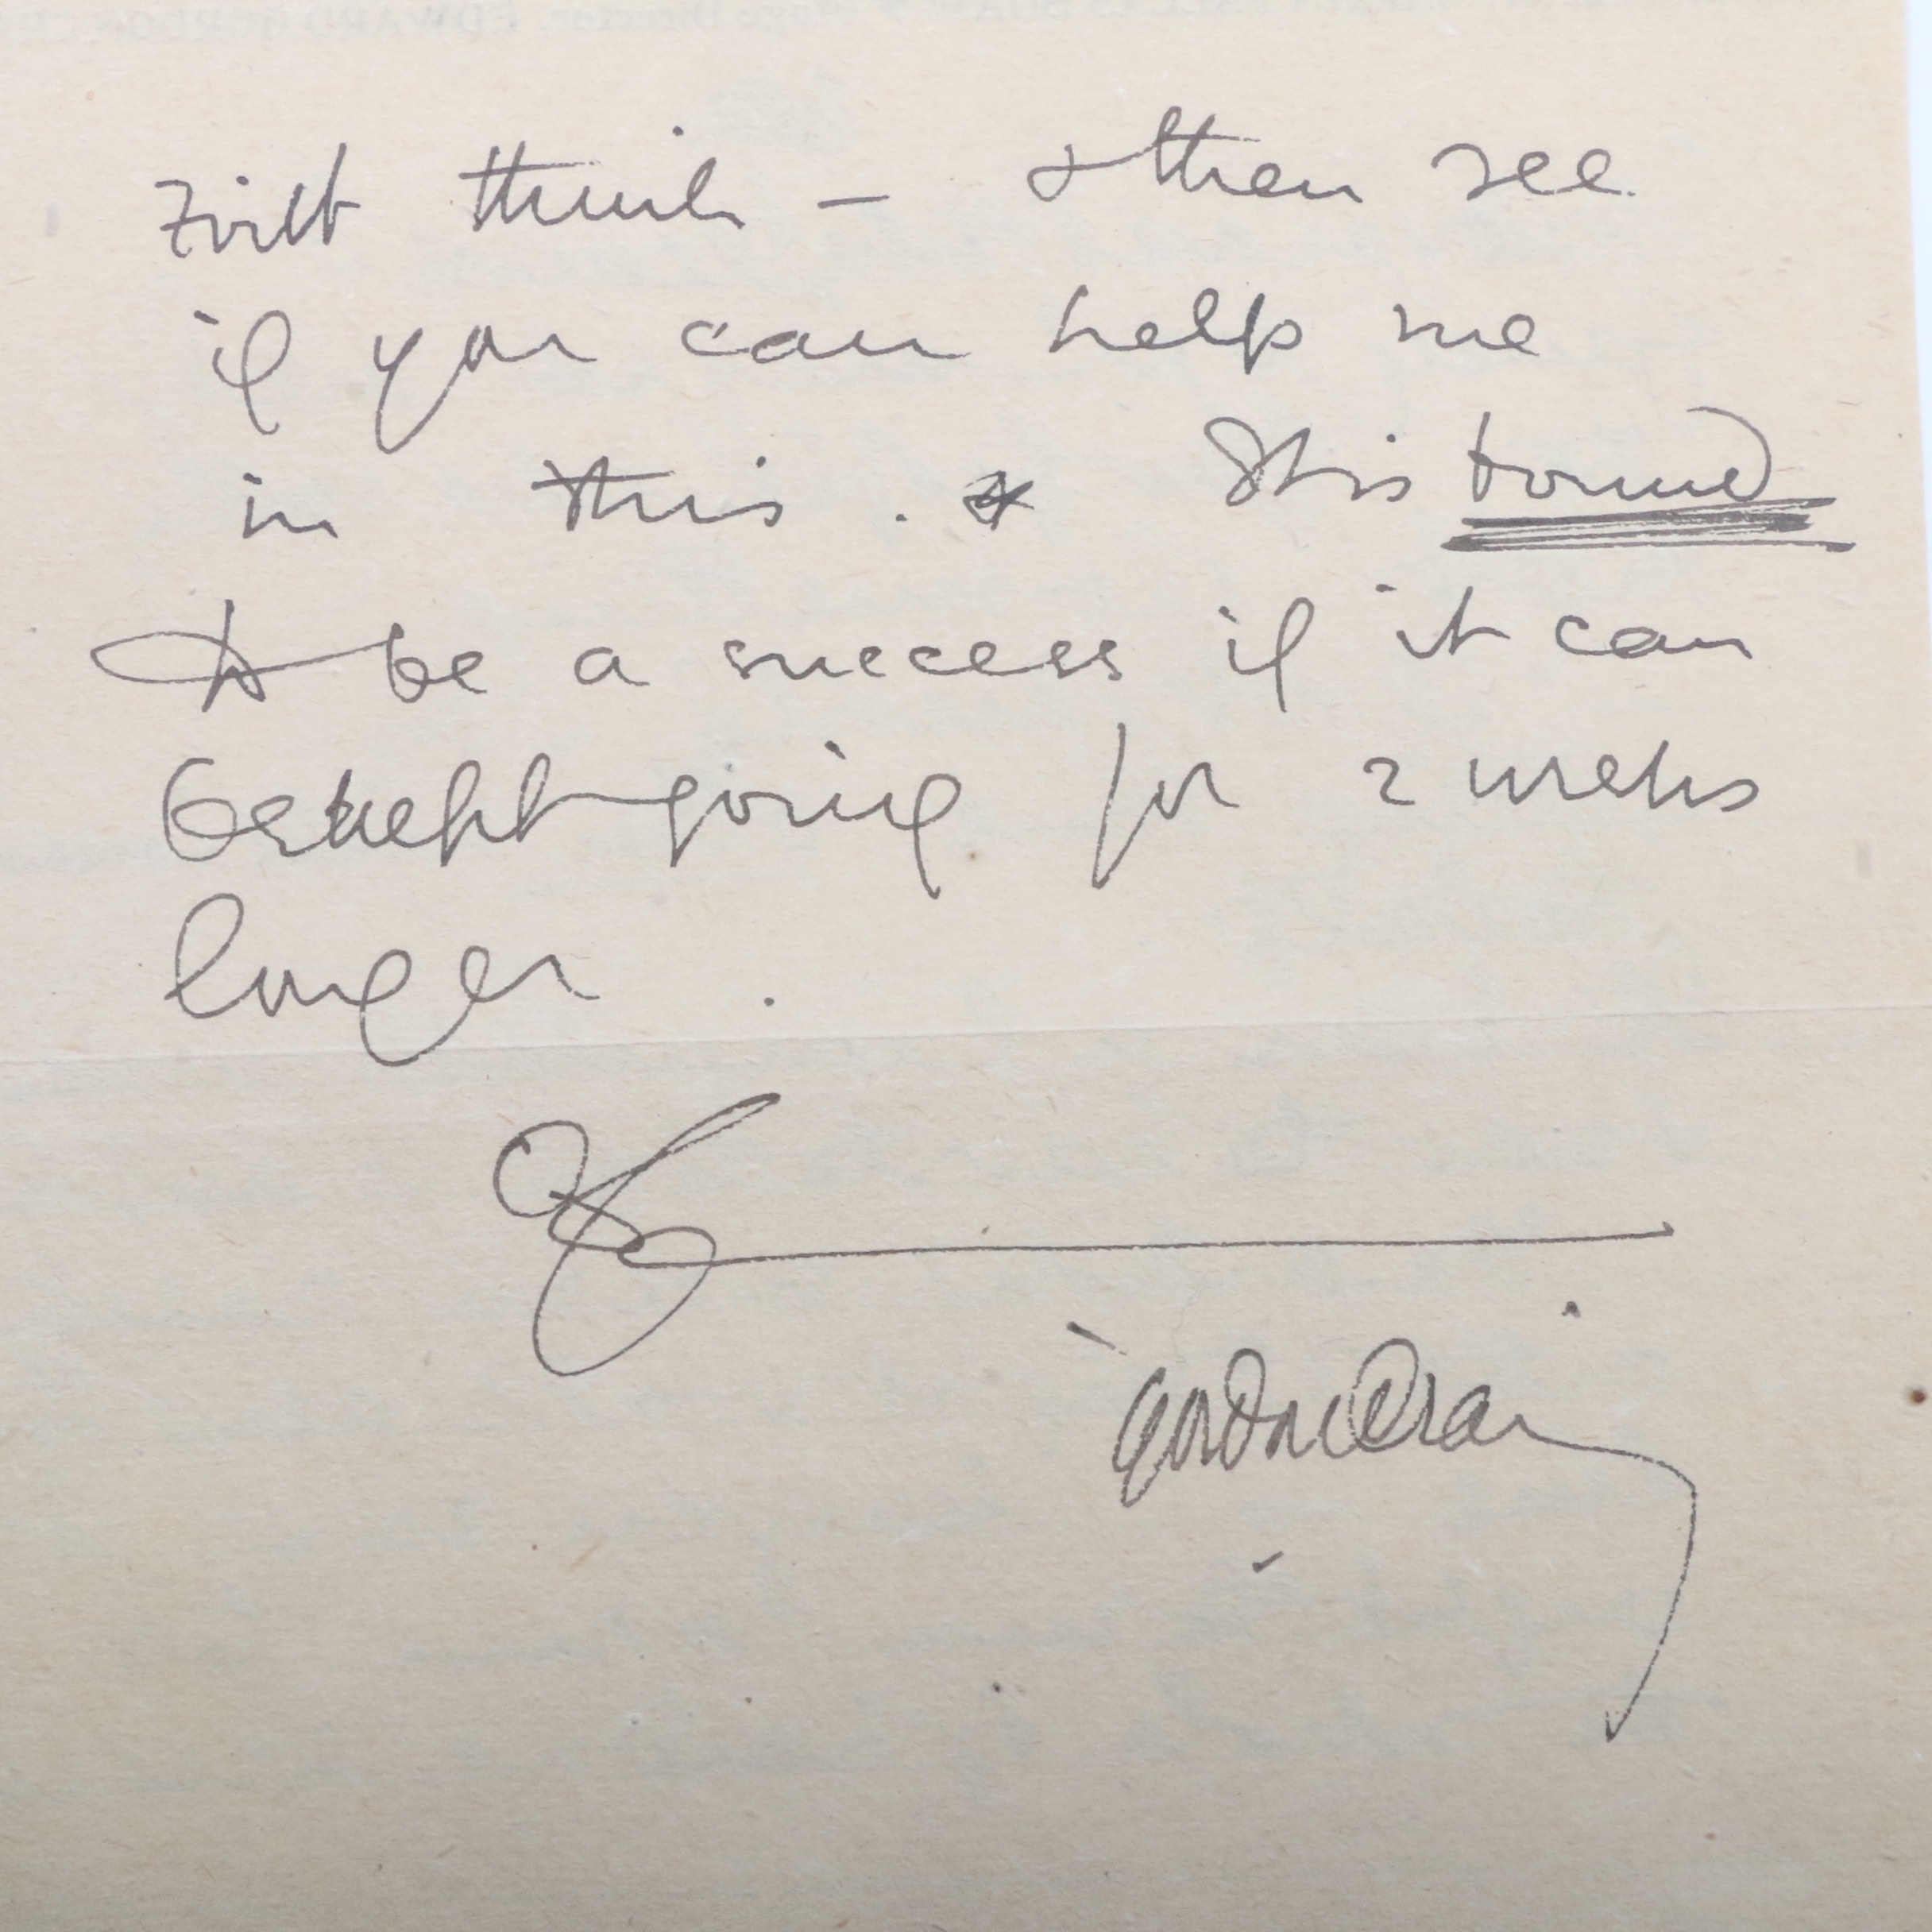 First think — & then see
if you can help me
in this. It is bound
to be a success if it can
be kept going for 2 weeks
longer.
Gordon Craig